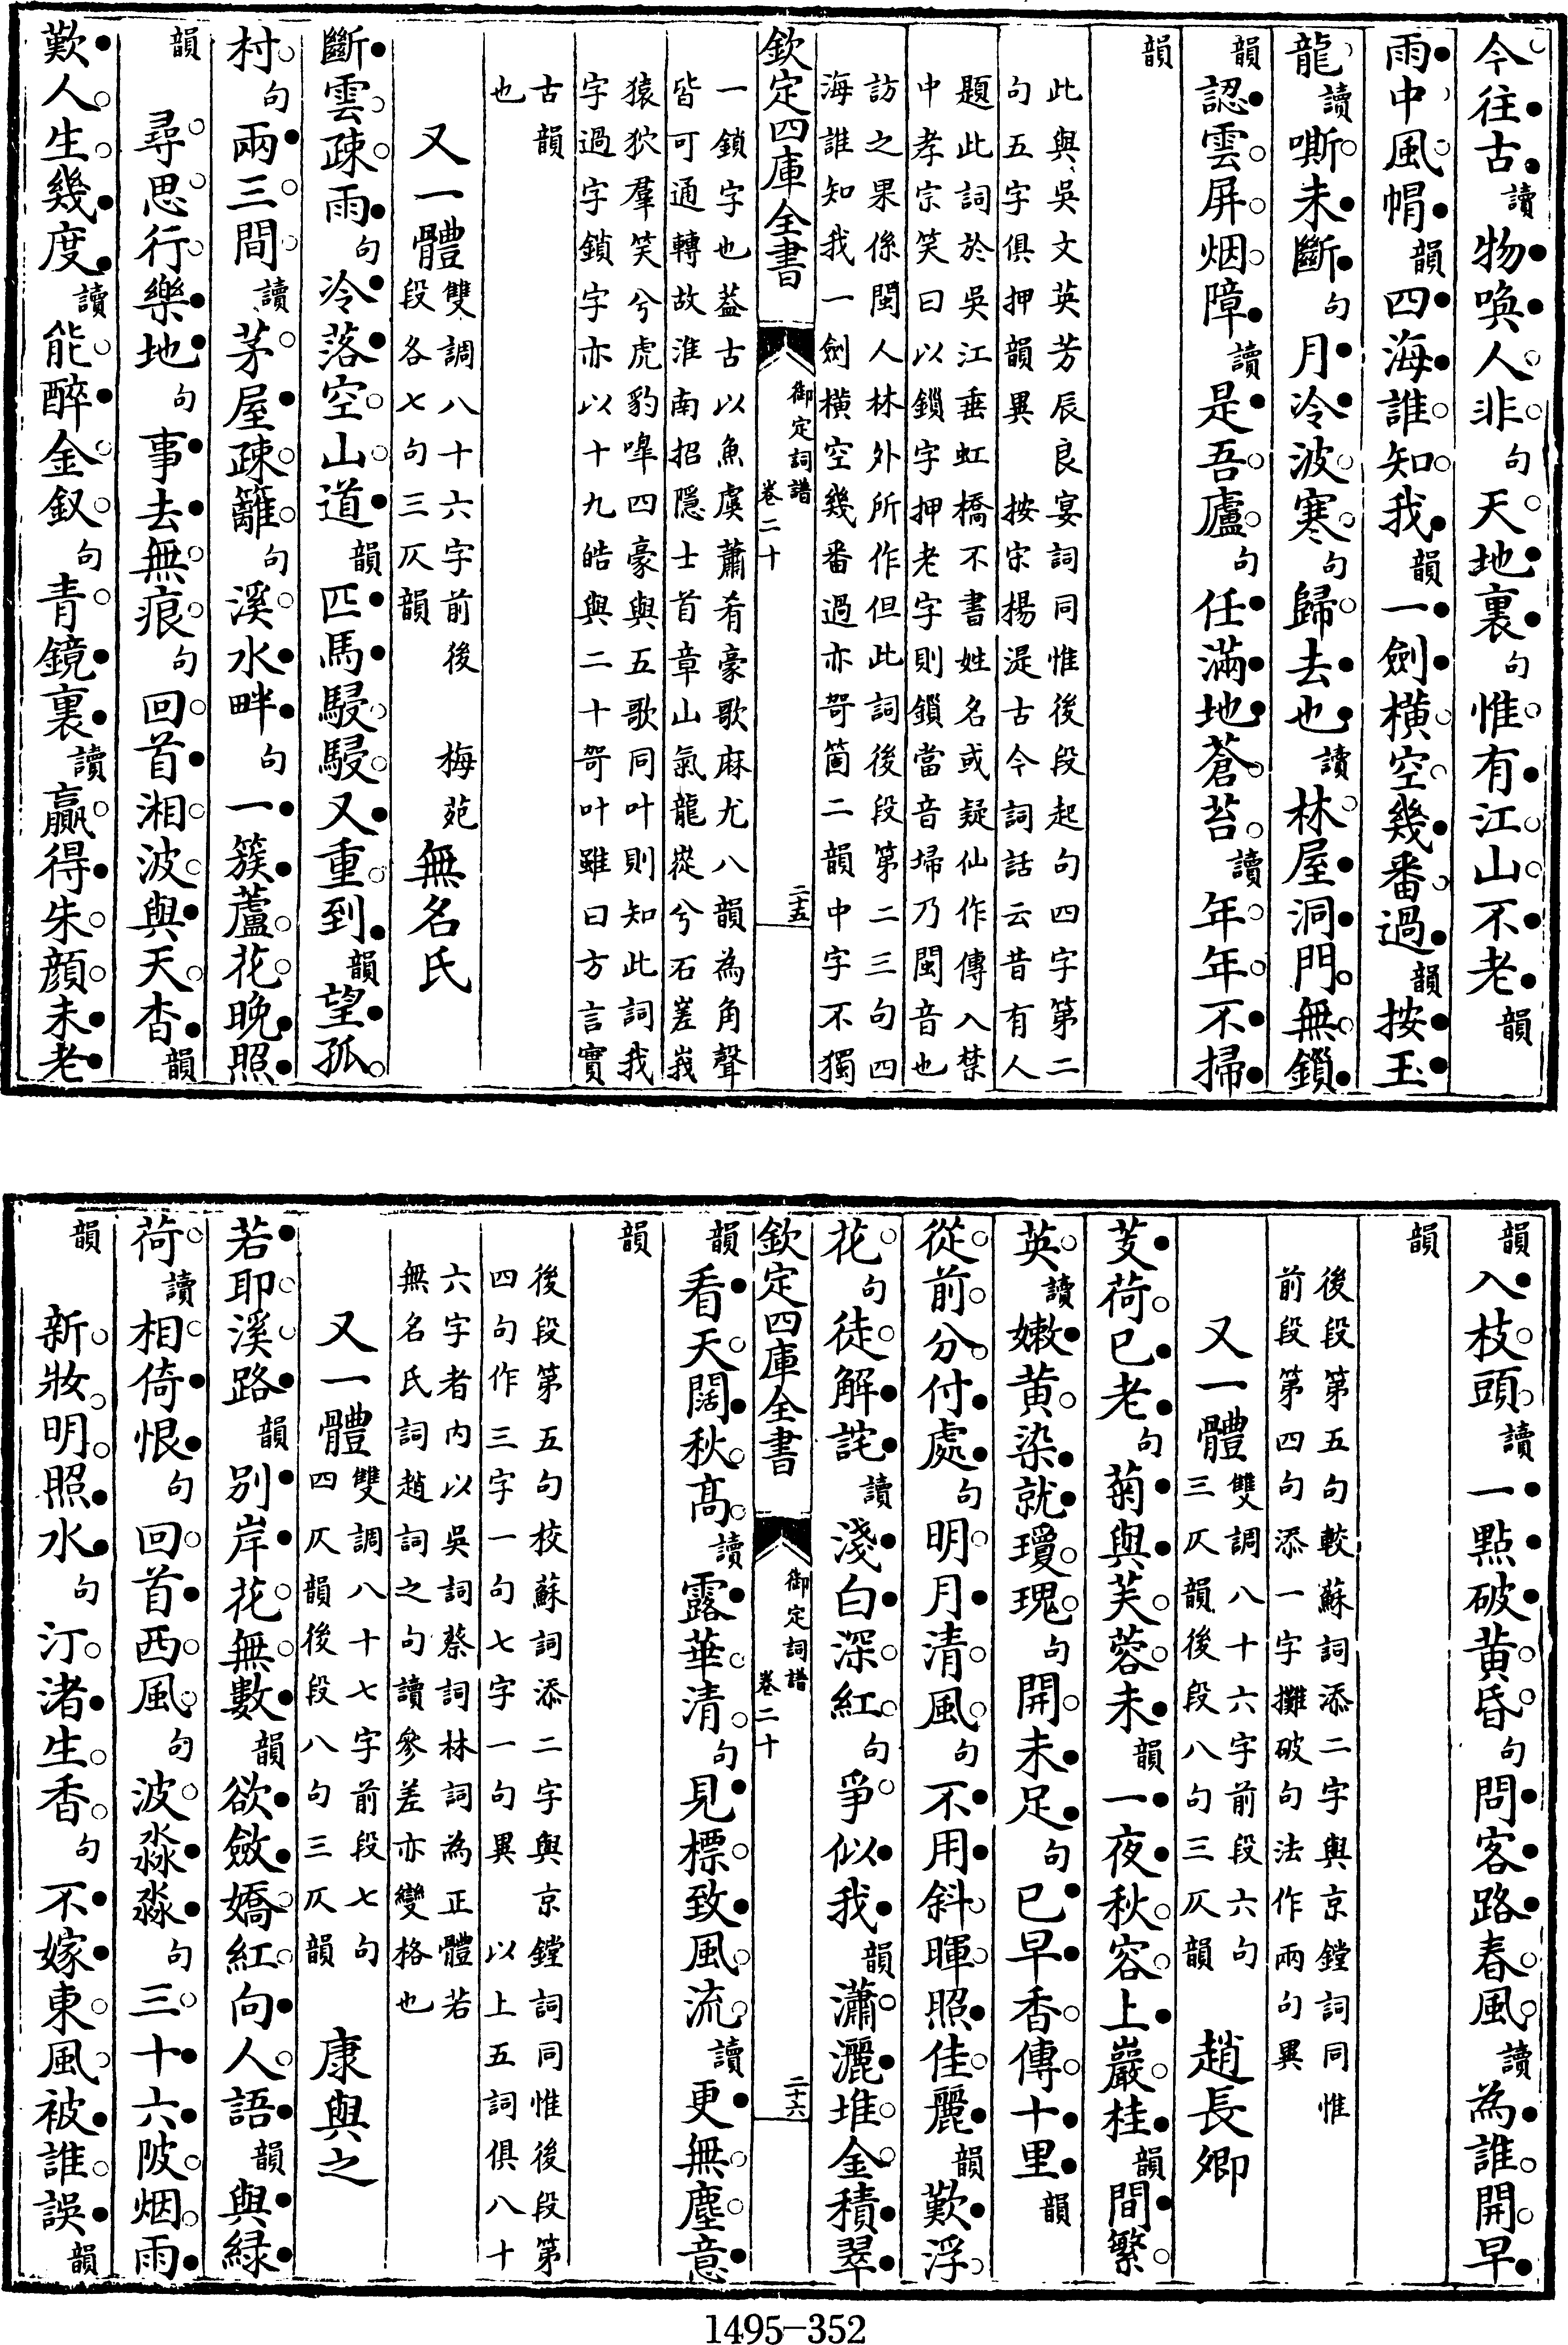 今往古讀物喚人非句天地裏句惟有江山不老韻
雨中風帽韻四海誰知我韻一劍横空幾番過韻按玉
龍讀嘶未斷句月冷波寒句歸去也讀林屋洞門無鎖
韻認雲屏烟障讀是吾廬句任滿地蒼苔讀年年不掃
韻
此與吳文英芳辰良宴詞同惟後段起句四字第二
句五字俱押韻異　按宋楊湜古今詞話云昔有人
題此詞於吳江垂虹橋不書姓名或疑仙作傳入禁
中孝宗笑曰以鎖字押老字則鎖當音埽乃閩音也
訪之果係閩人林外所作但此詞後段第二三句四
海誰知我一劍横空幾番過亦哿箇二韻中字不獨
欽定四庫全書　御定詞譜卷二十　二十五
一鎖字也葢古以魚虞蕭肴豪歌麻尤八韻為角聲
皆可通轉故淮南招隱士首章山氣龍嵸兮石嵳峩
猿狖羣笑兮虎豹嘷四豪與五歌同叶則知此詞我
字過字鎖字亦以十九皓與二十哿叶雖曰方言實
古韻
也
又一體雙調八十六字前後段各七句三仄韻　梅苑無名氏
斷雲疎雨句冷落空山道韻匹馬駸駸又重到韻望孤
村句兩三間讀茅屋疎籬句溪水畔句一簇蘆花晚照
韻　尋思行樂地句事去無痕句回首湘波與天杳韻
歎人生幾度讀能醉金釵句青鏡裏讀贏得朱顔未老
韻入枝頭讀一點破黄昏句問客路春風讀為誰開早
韻
後段第五句較蘇詞添二字與京鏜詞同惟
前段第四句添一字攤破句法作兩句異
又一體雙調八十六字前段六句三仄韻後段八句三仄韻　趙長卿
芰荷已老句菊與芙蓉未韻一夜秋容上巖桂韻間繁
英讀嫩黄染就瓊瑰句開未足句已早香傳十里韻
從前分付處句明月清風句不用斜暉照佳麗韻歎浮
花句徒解詫讀淺白深紅句爭似我韻瀟灑堆金積翠
欽定四庫全書　御定詞譜卷二十　二十六
韻看天闊秋髙讀露華清句見標致風流讀更無塵意
韻
後段第五句校蘇詞添二字與京鏜詞同惟後段第
四句作三字一句七字一句異　以上五詞俱八十
六字者内以吳詞蔡詞林詞為正體若
無名氏詞趙詞之句讀參差亦變格也
又一體雙調八十七字前段七句四仄韻後段八句三仄韻　康與之
若耶溪路韻别岸花無數韻欲斂嬌紅向人語韻與緑
荷讀相倚恨句回首西風句波淼淼句三十六陂烟雨
韻　新妝明照水句汀渚生香句不嫁東風被誰誤韻
1495-352